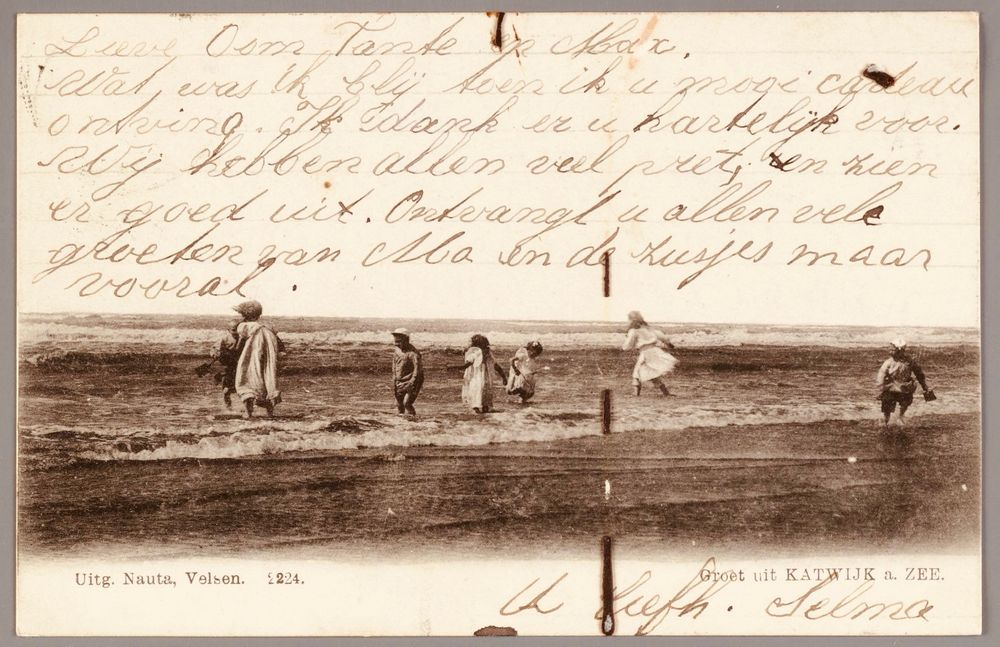 Lieve Oom, Tante en Max.
Wat was ik blij toen ik u mogi cadeau
ontving. Ik dank er u hartelijk voor.
Wij hebben allen veel pret, en zien
er goed uit. Ontvangt u allen vele
groeten van Ma en de zusjes maar
vooral.
Uitg. Nauta, Velsen. 2224.
Groet uit KATWIJK a. ZEE.
U liefh. Selma